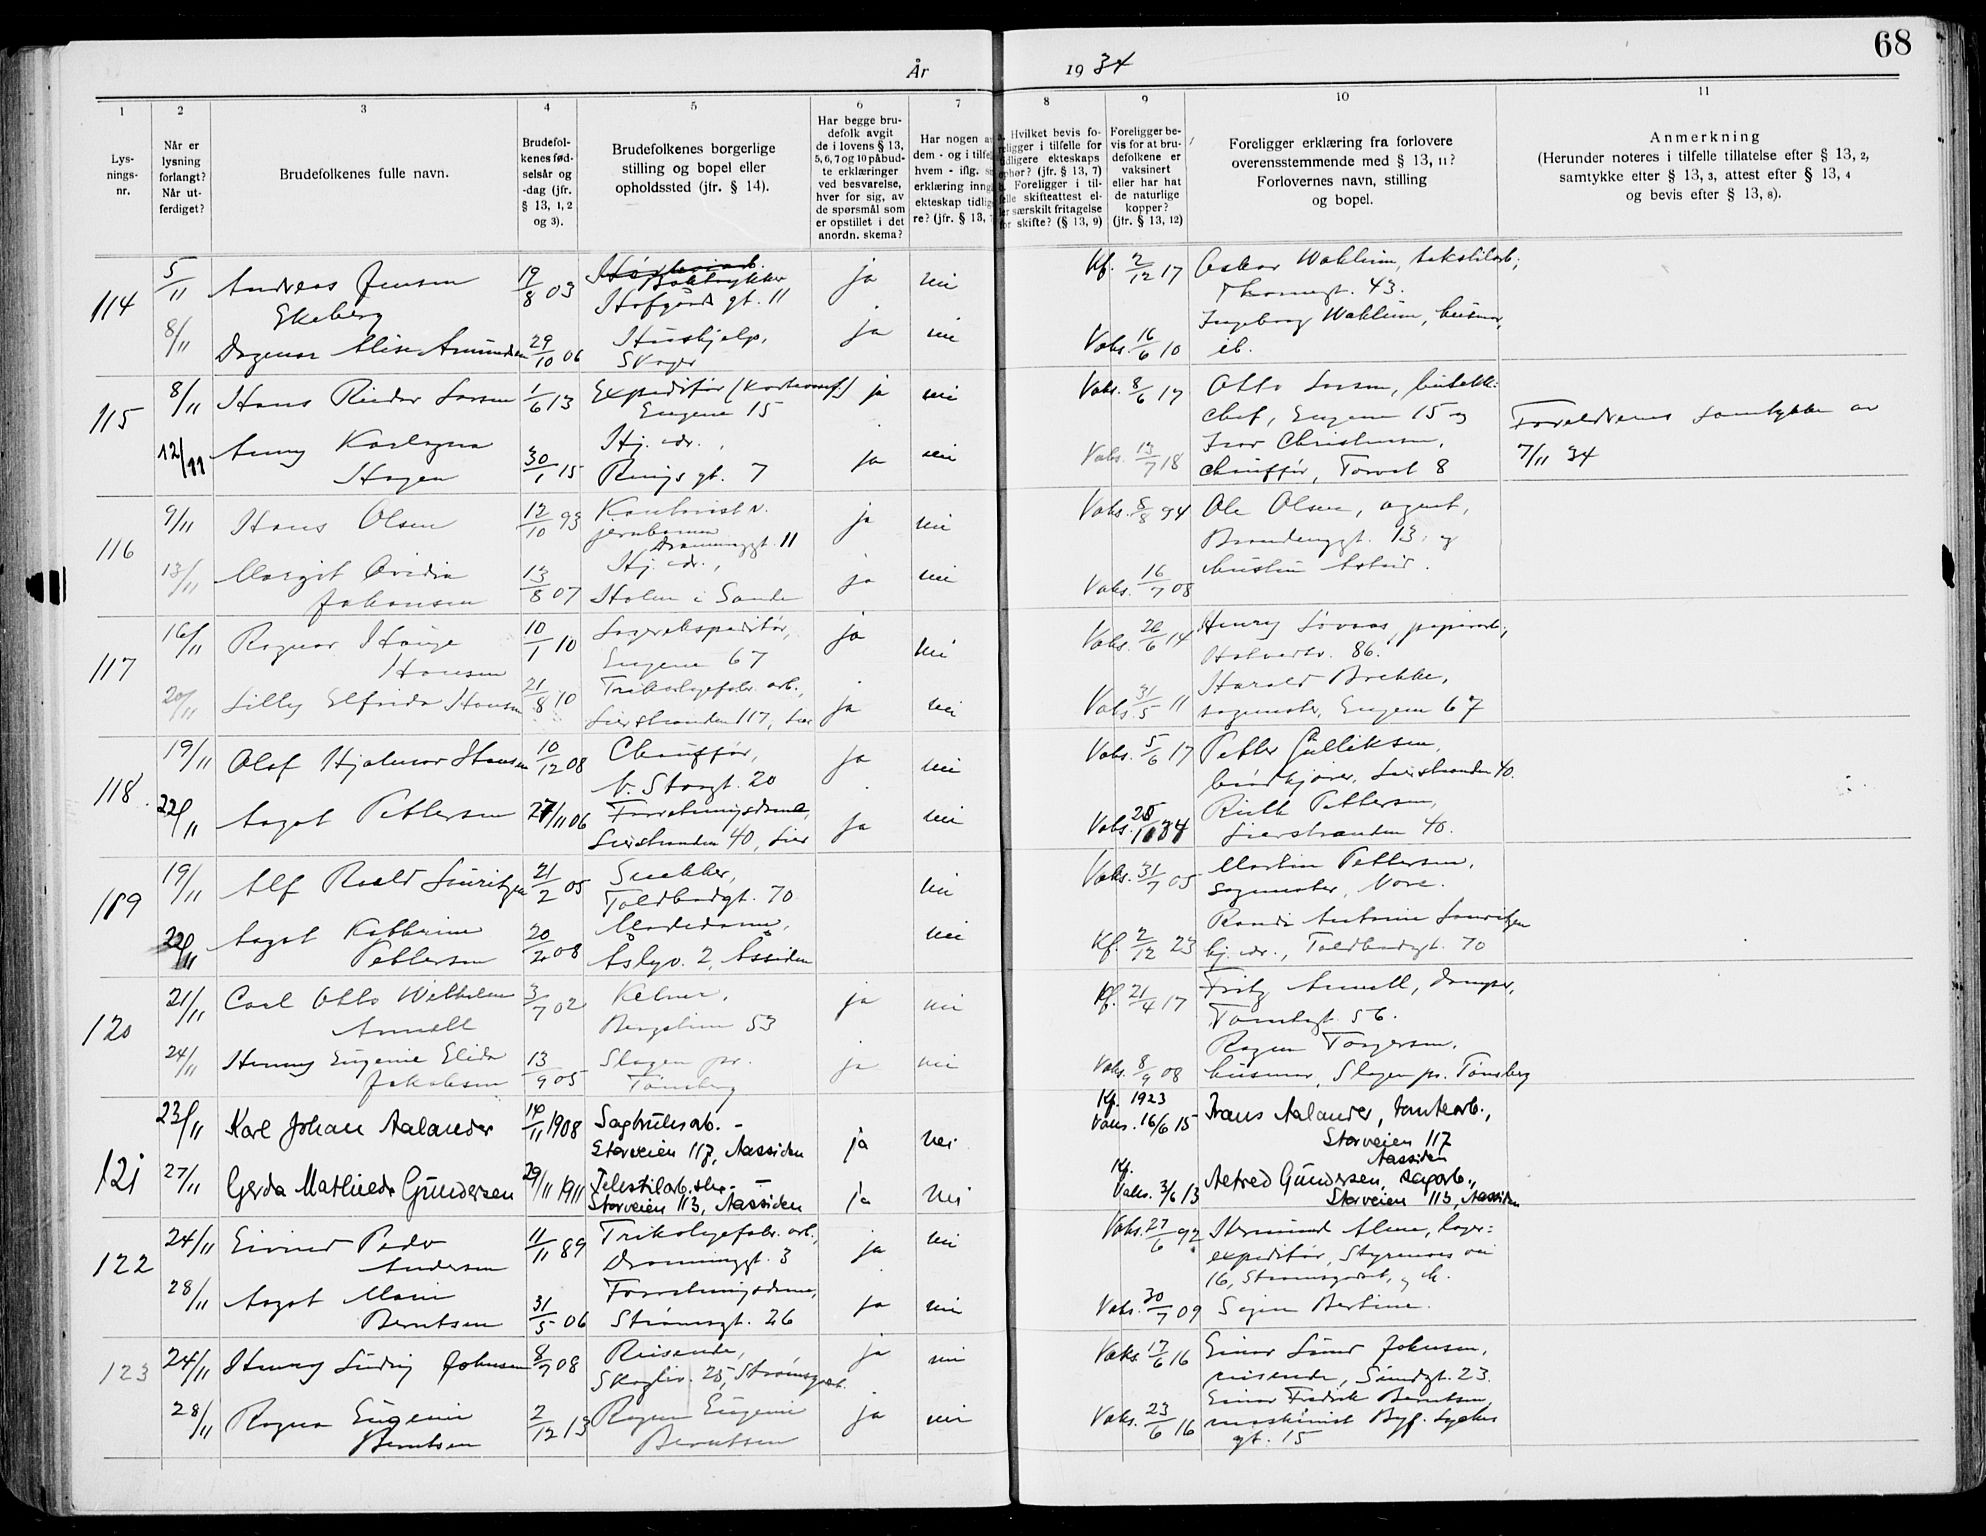 68
År 1934
1 2 3 4 5 6 7 8 9 10 11
Lys-
nings-
nr.
Når er
lysning
forlangt?
Når ut-
ferdiget?
Brudefolkenes fulle navn.
Brudefol-
kenes fød-
selsår og
-dag (jfr.
§ 13, 1, 2
og 3).
Brudefolkenes borgerlige
stilling og bopel eller
opholdssted (jfr. § 14).
Har begge bru-
defolk avgit
de i lovens § 13,
5, 6, 7 og 10 påbud-
te erklæringer
ved besvarelse,
hver for sig, av
de spørsmål som
er opstillet i det
anordn. skema?
Har nogen
dem - og i tilfel
hvem - iflg.
erklæring inng
ekteskap tidlig
re? (jfr. § 13,
Hvilket bevis fo-
religger i tilfelle for
tidligere ekteskaps
ophør? (jfr. § 13, 7)
Foreligger i til-
felle skifteattest el-
ler særskilt fritagelse
for skifte? (§ 13, 9)
Foreligger be-
vis for at bru-
defolkene er
vaksinert
eller har hat
de naturlige
kopper?
(jfr. § 13, 12)
Foreligger erklæring fra forlovere
overensstemmende med § 13, 11?
Forlovernes navn, stilling
og bopel.
Anmerkning
(Herunder noteres i tilfelle tillatelse efter § 13, 2,
samtykke efter § 13, 3, attest efter § 13, 4
og bevis efter § 13, 8).
114 5/11 Andreas Jensen 19/8 03 Boktrykker ja nei Kf. 2/12 17 Oskar Wahlum, tekstilarb.,
Ekeberg Hofgårds gt. 11 43.
8/11 Dagmar Alise Amundsen 29/10 06 Hushjelp, ja nei Vaks. 16/6 10 Ingeborg Wahlum, husmor,
Skoger ib.
115 8/11 Hans Reidar Larsen 1/6 13 Expeditør ja nei Vaks. 8/6 17 Otto Larsen, butikk-
Engene 15 chef, Engene 15 og
12/11 Anny Karlagna 30/1 15 Hj. vær., ja nei Vaks. 13/7 18 Ivar Christensen, Foreldrenes samtykke av
Hagen Rings gt. 7 chauffør, Torvet 8 7/11 34
116 9/11 Hans Olsen 12/10 93 Kontorist v. ja nei Vaks. 8/8 94 Ole Olsen, agent,
jernbanen 13, og
Dronninggt. 11
13/11 Margit Ovidia 13/8 07 Hj. vær., ja nei Vaks. 16/7 08 hustru Astrid.
Johansen Holm i Sande
117 16/11 Ragnar Hauge 10/1 10 Lagerekspeditør, ja nei Vaks. 26/6 14 Henry Lövaas, papirarb.,
Hansen Engene 67 86.
20/11 Lilly Elfrida Hansen 21/8 10 Trikotagefabr. arb., ja nei Vaks. 31/5 11 Harald Brekke,
Lierstranden 117, Lier sagmester, Engene 67
118. 19/11 Olaf Hjalmar Hansen 10/12 08 Chauffør, ja nei Vaks. 5/6 17 Petter Gulliksen,
N. Storgt. 20 Lierstranden 40.
22/11 Aagot Pettersen 27/11 06 Forretningsdame, ja nei Vaks. Ruth Pettersen,
Lierstranden 40, Lier Lierstranden 40.
119 19/11 Alf Roald Lauritzen 21/2 05 Snekker, nei Vaks. 31/7 05 Martin Pettersen,
Toldbodgt. 70 sagmester, Nore.
22/11 Aagot Kathrine 20/2 08 Modedame, nei Kf. 2/12 23 Randi Antonie Lauritzen
Pettersen Åslyv. 2, Åssiden hj. vær., Toldbodgt. 70
120 21/11 Carl Otto Wilhelm 3/7 02 Kelner, ja nei Kf. 21/4 17 Fritz Annell,
Annell Bergstien 53 56.
24/11 Henny Eugenie Elida 13/9 05 Slagen pr. ja nei Vaks. 8/9 08 Ragna Torgersen,
Jakobsen Tønsberg husmor, Slagen pr. Tønsberg
121 23/11 Karl Johan Aalander 14/11 1908 Sagbruksarb. - ja nei Kf. 1923
Vaks. 16/6 15 Frans Aalander, tomtearb.,
Storveien 117, Aassiden Storveien 117
Aassiden
27/11 Gerda Mathilde Gundersen 29/11 1911 - ja nei Kf.
Vaks. 3/6 13 Alfred Gundersen, sagarb.,
Storveien 113, Aassiden Storveien 113, Aassiden
122 24/11 Eivind Pedro 11/11 89 Trikotagefabr. arb., ja nei Vaks. 27/6 92 Hermund Alme, lager-
Andersen Dronninggt. 3 expeditør, Styrmoes vei
16, Strømsgodset, og fr.
28/11 Aagot Marie 31/5 06 Forretningsdame, ja nei Vaks. 30/7 09 Signe Bertine.
Berntsen Strømsgt. 26
123 24/11 Henry Ludvig Johnsen 8/7 08 Reisende, ja nei Vaks. 17/6 16 Einar Lund Johnsen,
Skogliv. 25, Strømsgodset. reisende, Sundgt. 23.
28/11 Ragna Eugenie 2/12 13 Ragna Eugenie ja nei Vaks. 23/6 16 Einar Fredrik Berntsen,
Berntsen Berntsen maskinist Byf. Lyches
gt. 15